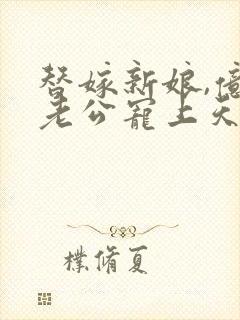 替嫁新娘,億
老公寵上天
樸脩夏